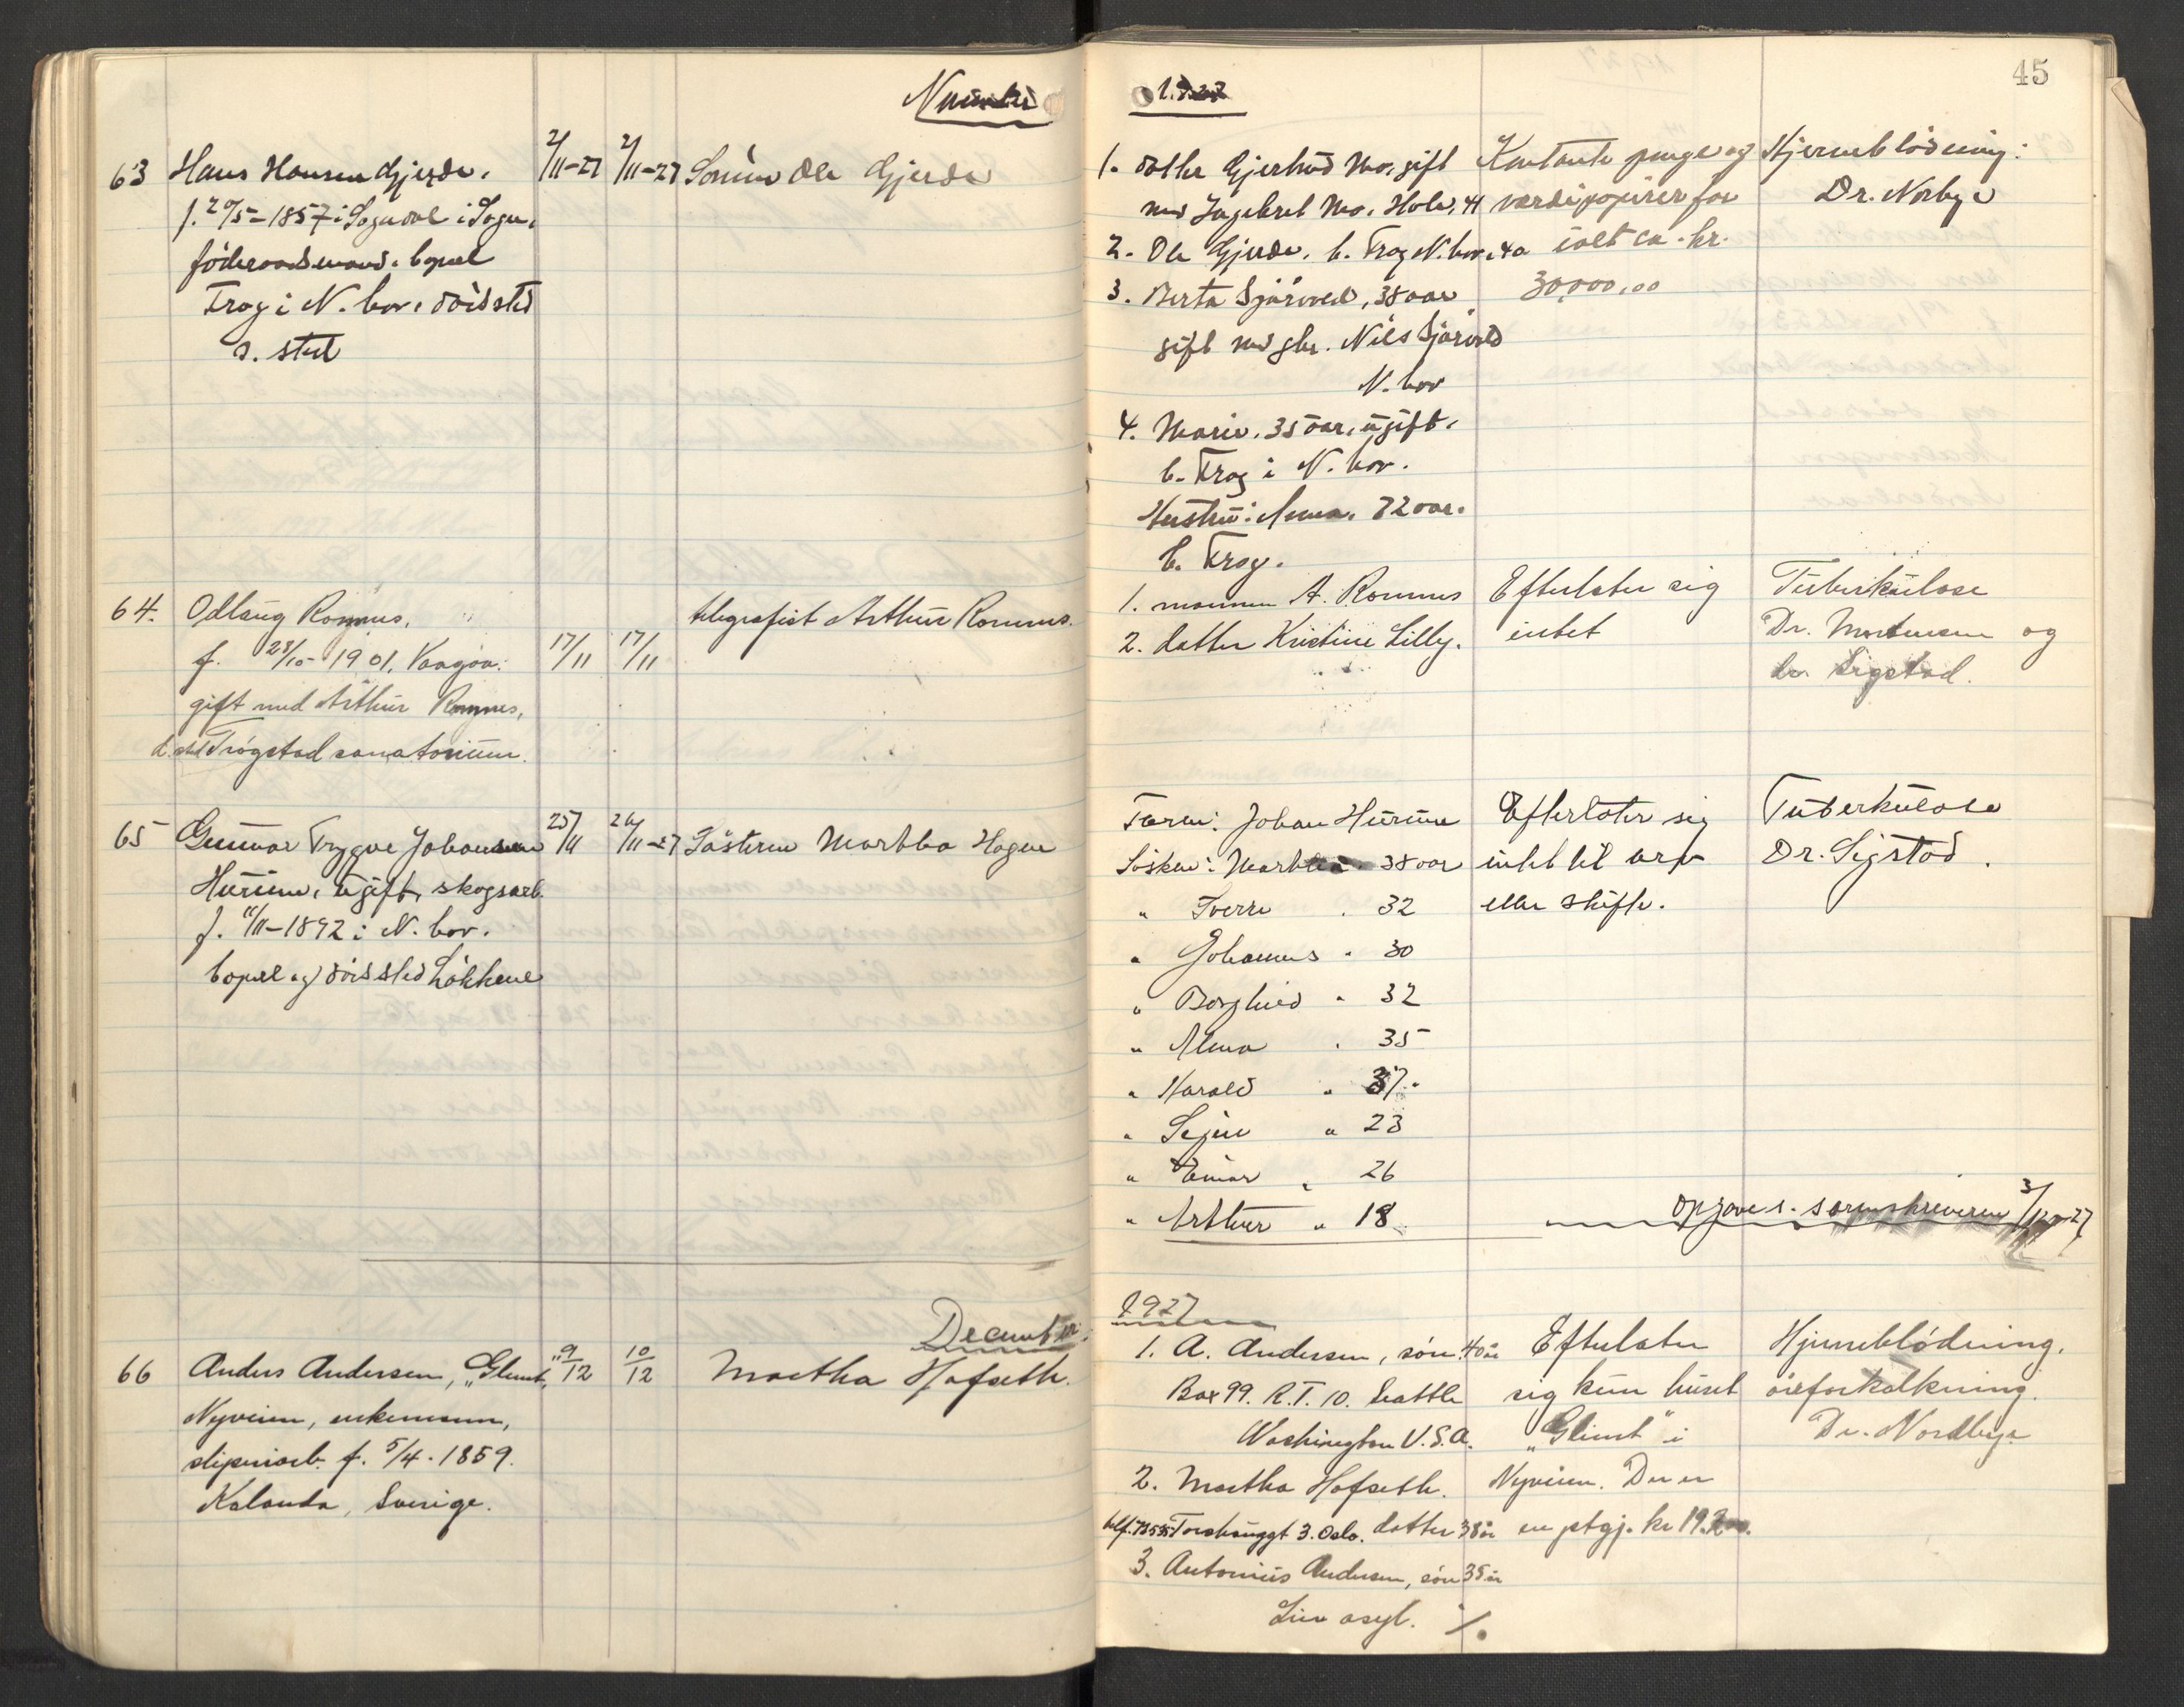 45
November 1927
63 Hans Hansen Gjerde. 2/11-27 2/11-27 Sønnen Ole Gjerde
f. 20/5-1857 i Sogndal i Sogn.
föderaadsmand. bopæl
Frog i N. hov. dödssted
s. sted
1. datter Gjertrud Mo, gift
med Ingebret Mo, Hole, 41
2. Ole Gjerde, b. Frog N. hov, 40
3. Berta Sjørvold, 38 aar
gift med gbr. Nils Sjørvold
N. hov
4. Marie, 35 aar, ugift,
b. Frog i N. hov.
Hustru: Anna, 72 aar.
b. Frog.
Kontante penge og
værdipapirer for
ialt ca. kr.
30,000,00
Hjerneblödning:
Dr. Norbye
64. Odlaug Romnes,
f. 28/10-1901. Vaagaa. 17/11 17/11
gift med Arthur Romnes,
d. sted Trögstad sanatorium.
telegrafist Arthur Romnes.
1. mannen A. Romnes
2. datter Kristine Lilly.
Efterlater sig
intet
Tuberkulose
Dr. Mortensen og
dr. Sigstad.
65 Gunnar Trygve Johansen 25/11 26/11-27 Søsteren Martha Hagen
Hurum, ugift, skogsarb.
f. 11/11-1892 i N. hov.
bopæl og dödssted Løkkene
Faren: Johan Hurum
Søsken: Martha 38 aar
" Sverre . 32
" Johannes " 30
" Borghild " 32
" Alma . 35
" Harald " 37.
" Signe " 23
" Einar " 26
" Arthur " 18
Efterlater sig
intet til arv
eller skifte.
Tuberkulose
Dr. Sigstad.
Opgave s. sorenskriveren 3/12-27
December: 1927
66 Anders Andersen, „Glimt", 9/12 10/12 Martha Hofseth.
Nyveien, enkemann,
sliperiarb. f. 5/4. 1859.
Kalanda, Sverige.
1. A. Andersen, søn 40 år
Box 99. R.T. 10. Seattle
Washington U.S.A.
2. Martha Hofseth.
telf. 72535 Torshauggt 3. Oslo. datter 38 år
3. Antonius Andersen, søn 35 år
Lier asyl. ./.
Efterlater
sig kun huset
„Glimt" i
Nyveien. Der er
en ptgj. kr
Hjerneblödning.
åreforkalkning.
Dr. Nordbye